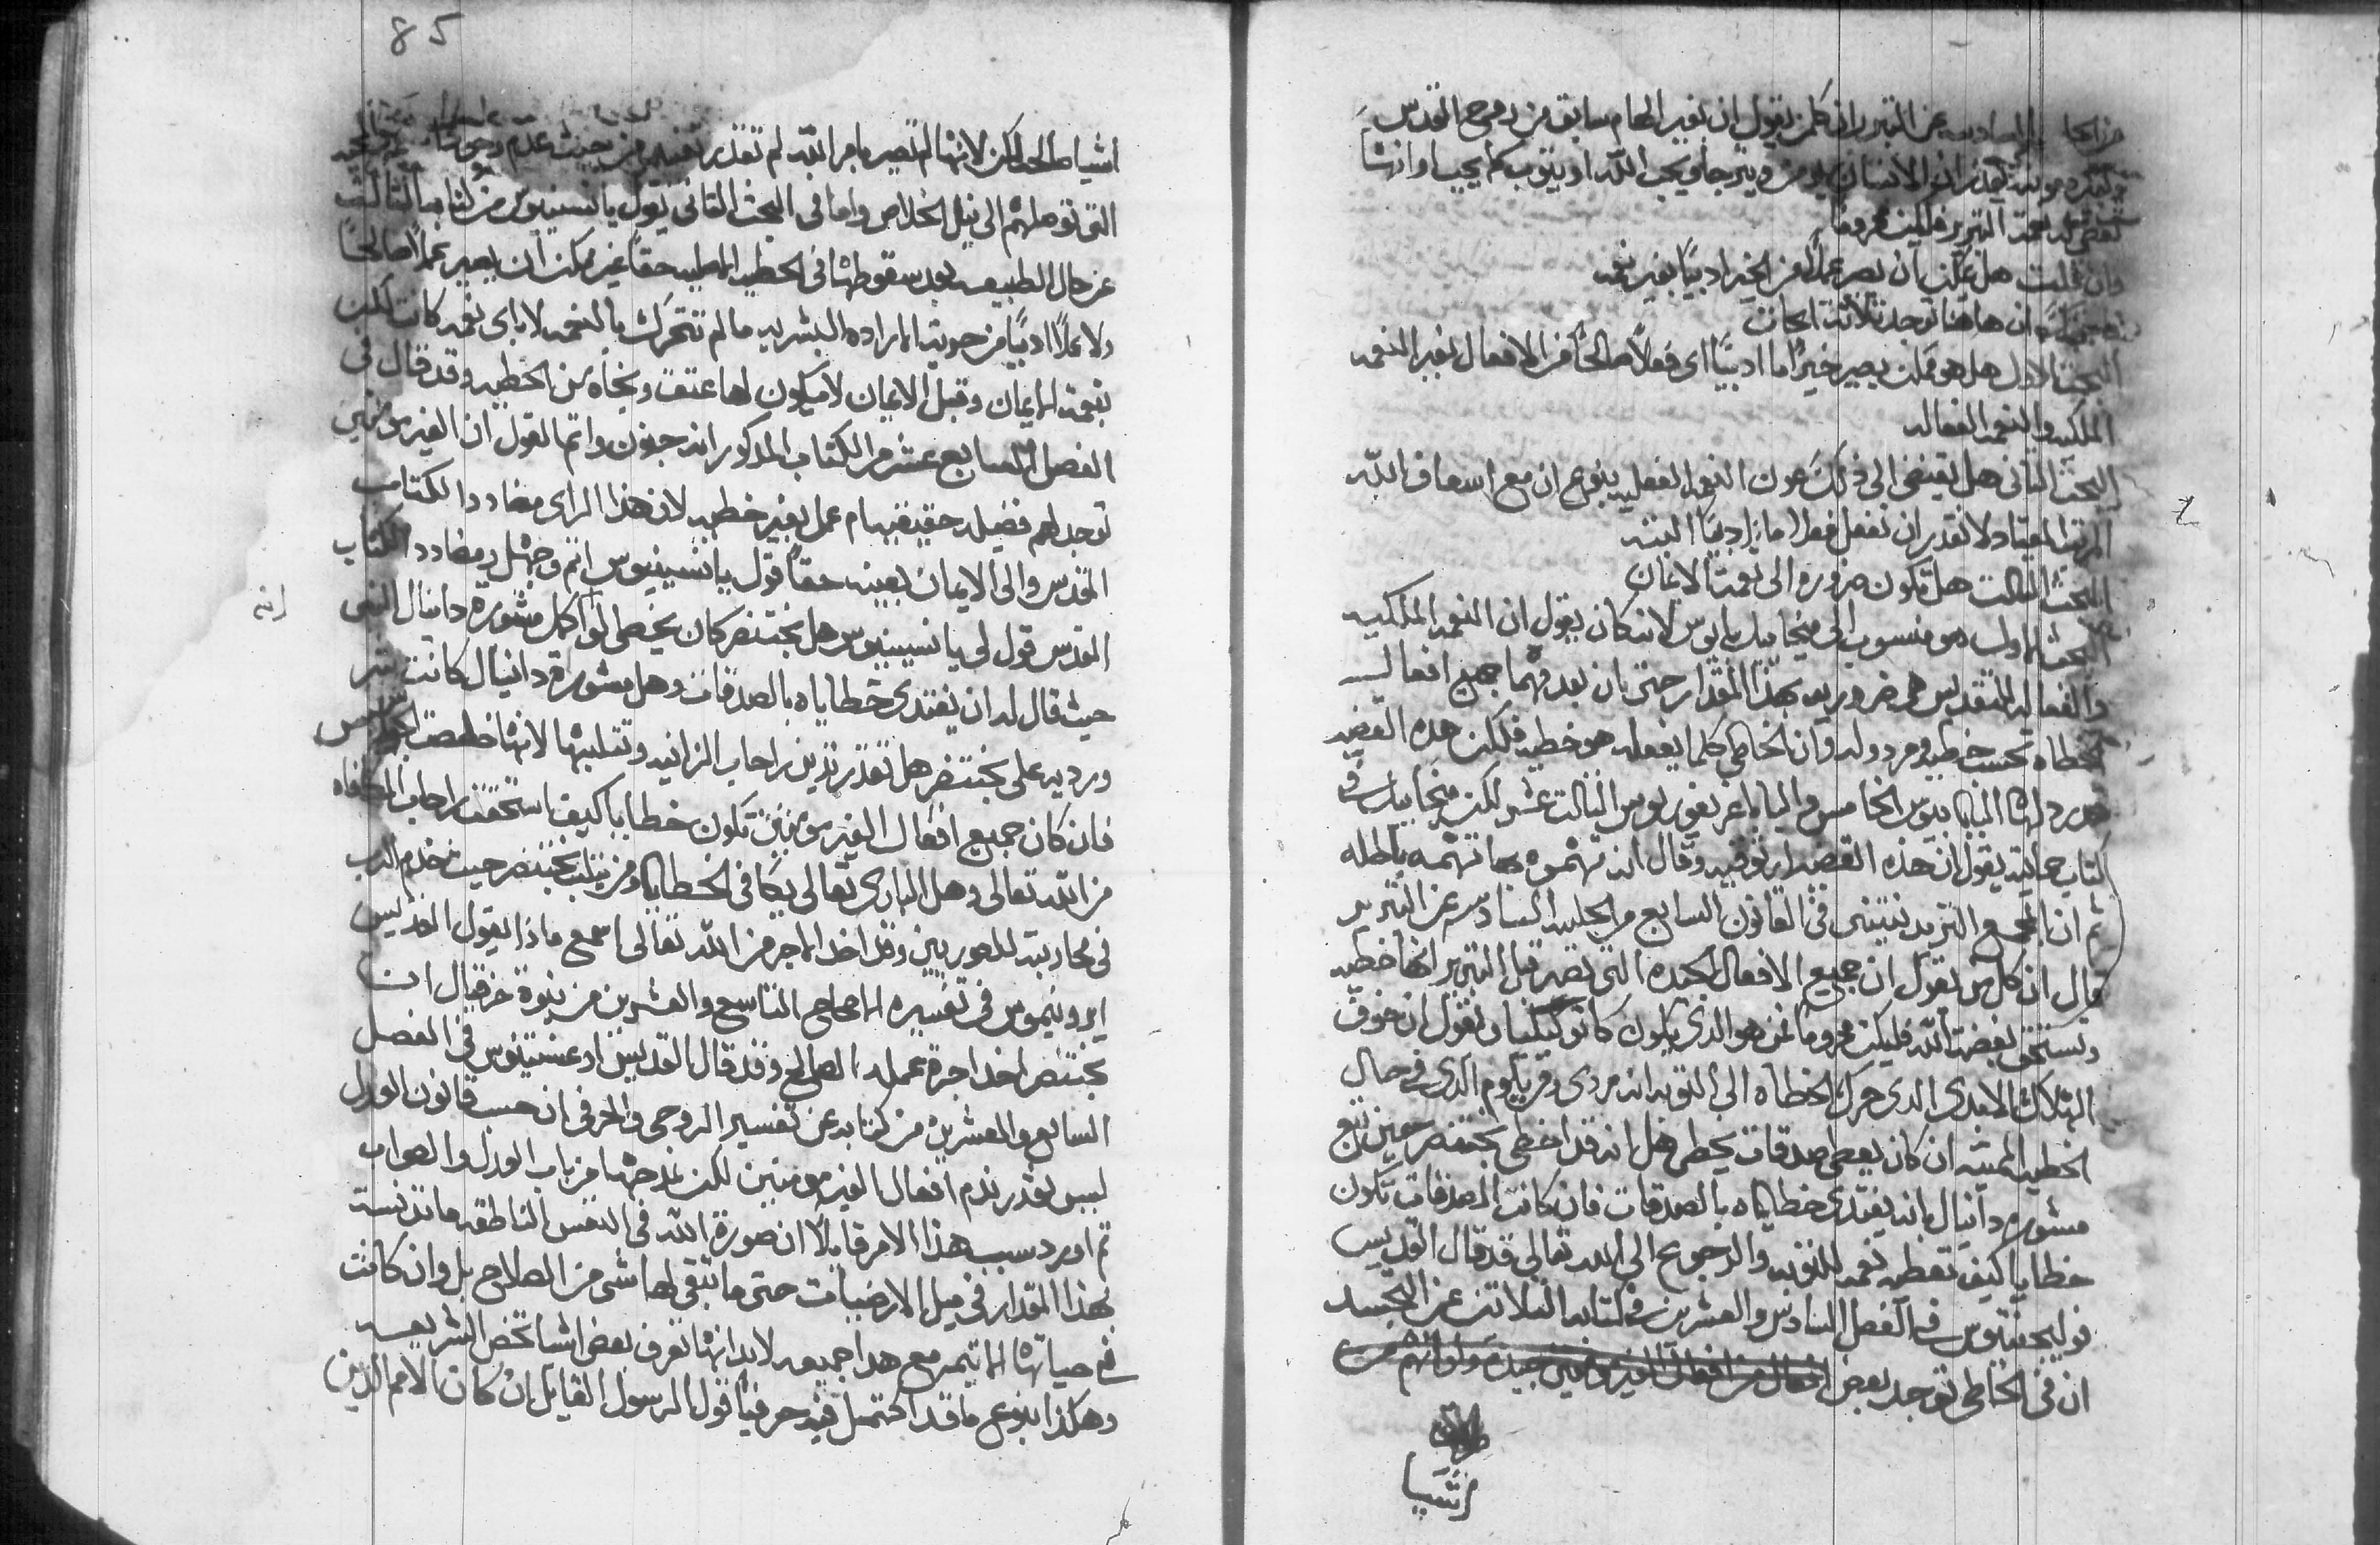 عن التبرير ان كلمن يقول ان بغير الهام سابق من روح القدس
الانسان يومن ويترجا ويحب الله او يتوب كما يجب اوانها
نعمة التبرير فليكن محروماً
وان قلت هل يمكن ان يصير عملاً من الخير ادبياً بغير نعمه
ان هاهنا توجد ثلاثة ابحاث
البحث الاول هل هو ممكن يصير خيراً ما ادبياً اى فعلاً صالحاً من الافعال بغير النعمه
الملكيه والنعمه الفعاله
البحث الثانى هل يقتضى الى ذلك عون النعمه الفعليه بنوع ان مع اسعاف الله
المعتاد لا تقدر ان تفعل فعلا ما ادبياً البته
البحث الثالث هل تكون ضروره الى نعمة الايمان
البحث الاول هو منسوب الى ميخاييل بايوس لانه كان يقول ان النعمه الملكيه
والفعاله للتقديس هى ضروريه بهذا المقدار حتى بان بعدمهما جميع افعال
الخطاه تحسب خطيه ومردوله وان الخاطى كلما يفعله هو خطيه فلكن هذه القضيه
قد رذلها البابا بيوس الخامس والبابا غريغوريوس الثالث عشر لكن ميخاييل فى
كتاب حمايته يقول ان هذه القضيه ارتوقيه وقال انه تهموه بها تهمه باطله
ثم ان المجمع التريدنتينى فى القانون السابع من الجلسه السادسه عن التبرير
قال ان كل من يقول ان جميع الافعال التى تصير قبل التبرير انها خطيه
وتستحق بغضة الله فليكن محروماً فمن هو الذى يكون كاتوليكياً ويقول ان خوف
الهلاك الابدى الذى حرك الخطاه الى التوبه انه مردى ومن يلوم الذى فى حال
الخطيه المميته ان كان يعطى صدقات يخطى هل انه قد اخطى بختنصر حين تبع
مشورة دانيال بانه يفتدى خطاياه بالصدقات فان كانت الصدقات تكون
خطايا كيف تعطيه نعمه للتوبه والرجوع الى الله تعالى قد قال القديس
فوليجنتيوس فى الفصل السادس والعشرين فى كتابه الثلاثه عن التجسد
ان فى الخاطى توجد بعض
اشيا
85
اشيا صالحه لكن لانها لم تصير بامر الله لم تقدر تفيدهم من حيث عدم
التى توصلهم الى نيل الخلاص واما فى البحث الثانى يقول يانسينيوس فى كتابه الثالث
عن حال الطبيعه بعد سقوطها فى الخطيه الاصليه حقاً غير ممكن ان يصير عملاً صالحاً
ولا عملاً ادبياً من حرية الاراده البشريه ما لم تتحرك بالنعمه لا باى نعمه كانت لكن
بنعمة الايمان وقبل الايمان لا يكون لها عتق ونجاه من الخطيه وقد قال فى
الفصل السابع عشر من الكتاب المذكور انه جنون واثم القول ان الغير مومنين
توجد لهم فضيله حقيقيه ام عمل بغير خطيه لان هذا الراى مضادد الكتاب
المقدس والى الايمان بعينه حقاً قول يانسينيوس اثم وجهل ومضادد الكتاب
المقدس قول لى يانسينيوس هل بختنصر كان يخطى لو اكمل مشورة دانيال النبى
انه
حيث قال له ان يفتدى خطاياه بالصدقات وهل مشورة دانيال كانت شر
ورديه على بختنصر هل تقدر تدين راحاب الزانيه وتثلبها لانها خلصت
فان كان جميع افعال الغير مومنين تكون خطايا كيف استحقت راحاب المكافاه
من الله تعالى وهل البارى تعالى يكافى الخطايا ومن يثلب بختنصر حيث خدم الرب
فى محاربته للصوريين وقد اخد الاجر من الله تعالى اسمع ماذا يقول القديس
ايرونيموس فى تفسيره الاصحاح التاسع والعشرين من نبوة حزقيال ان
بختنصر اخد اجرة عمله الصالح وقد قال القديس اوغسطينوس فى الفصل
السابع والعشرين من كتابه عن تفسير الروحى والحرفى ان حسب قانون العدل
ليس نقدر نذم افعال الغير مومنين لكن نمدحها من باب العدل والصواب
ثم اورد سبب هذا الامر قايلاً ان صورة الله فى النفس الناطقه ما تدنست
بهذا المقدار فى ميل الارضيات حتى ما تبقى لها شى من الصلاح بل وان كانت
فى حياتها الاثيمه مع هدا جميعه لابد انها تعرف بعض اشيا تخص الشريعه
وهكذا بنوع ما قد اكتمل فيه حرفياً قول الرسول القايل ان كان الامم الذين